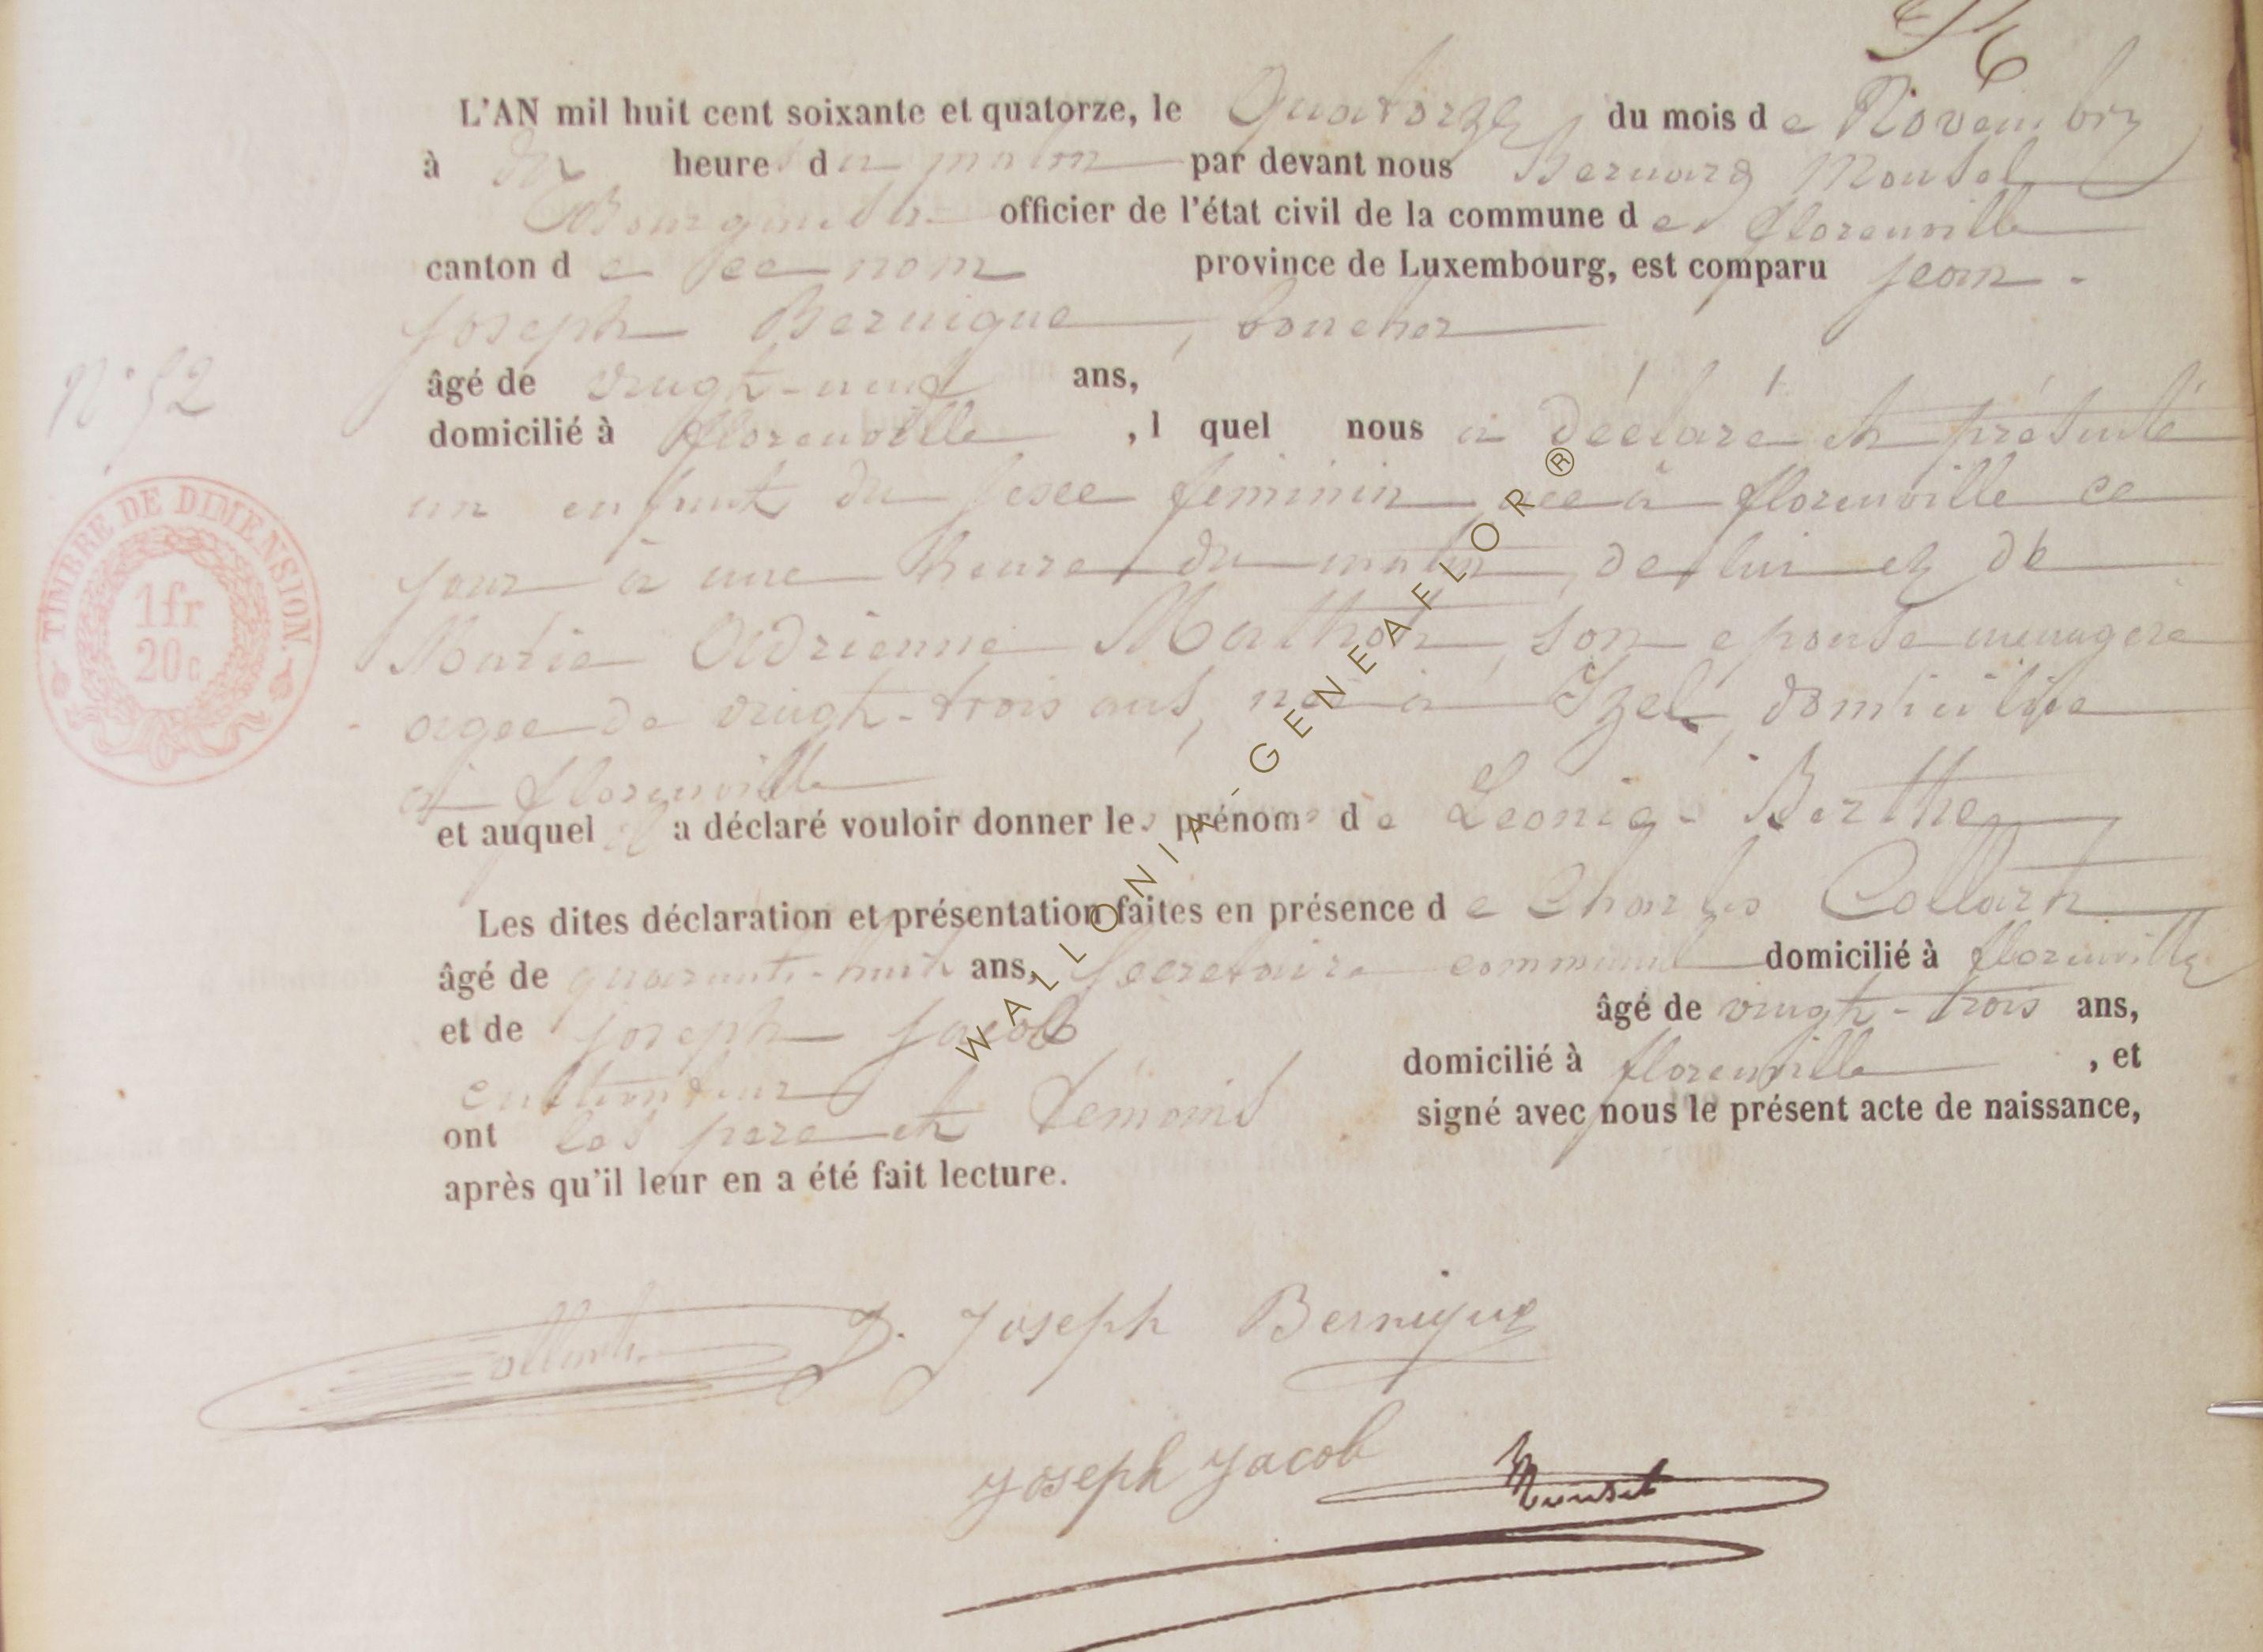 56
L'AN mil huit cent soixante et quatorze, le Quatorze du mois de Novembre
à dix heure du matin par devant nous Bernard Mousel
Bourgmestre officier de l'état civil de la commune de florenville
canton de ce nom province de Luxembourg, est comparu Jean-
Joseph Bernique, boucher
N° 52
âgé de vingt-neuf ans,
domicilié à florenville, l quel nous a déclaré et présenté
un enfant du sexe féminin née à florenville ce
jour à une heure du matin, de lui et de
Marie Adrienne Mathon, son epouse menagere
agee de vingt-trois ans, née à Izel, domiciliée
à florenville
et auquel il a déclaré vouloir donner les prénoms de Leonie-Berthe
Les dites déclaration et présentation faites en présence de Charles Collart
âgé de quarante-huit ans, Secretaire communal domicilié à florenville
et de joseph jacob âgé de vingt-trois ans,
cultivateur domicilié à florenville, et
ont les père et témoins signé avec nous le présent acte de naissance,
après qu'il leur en a été fait lecture.
TIMBRE DE DIMENSION.
1fr
20c
WALLONIA-GENEAFLOR®
Collart J. Joseph Bernique
Joseph Jacob